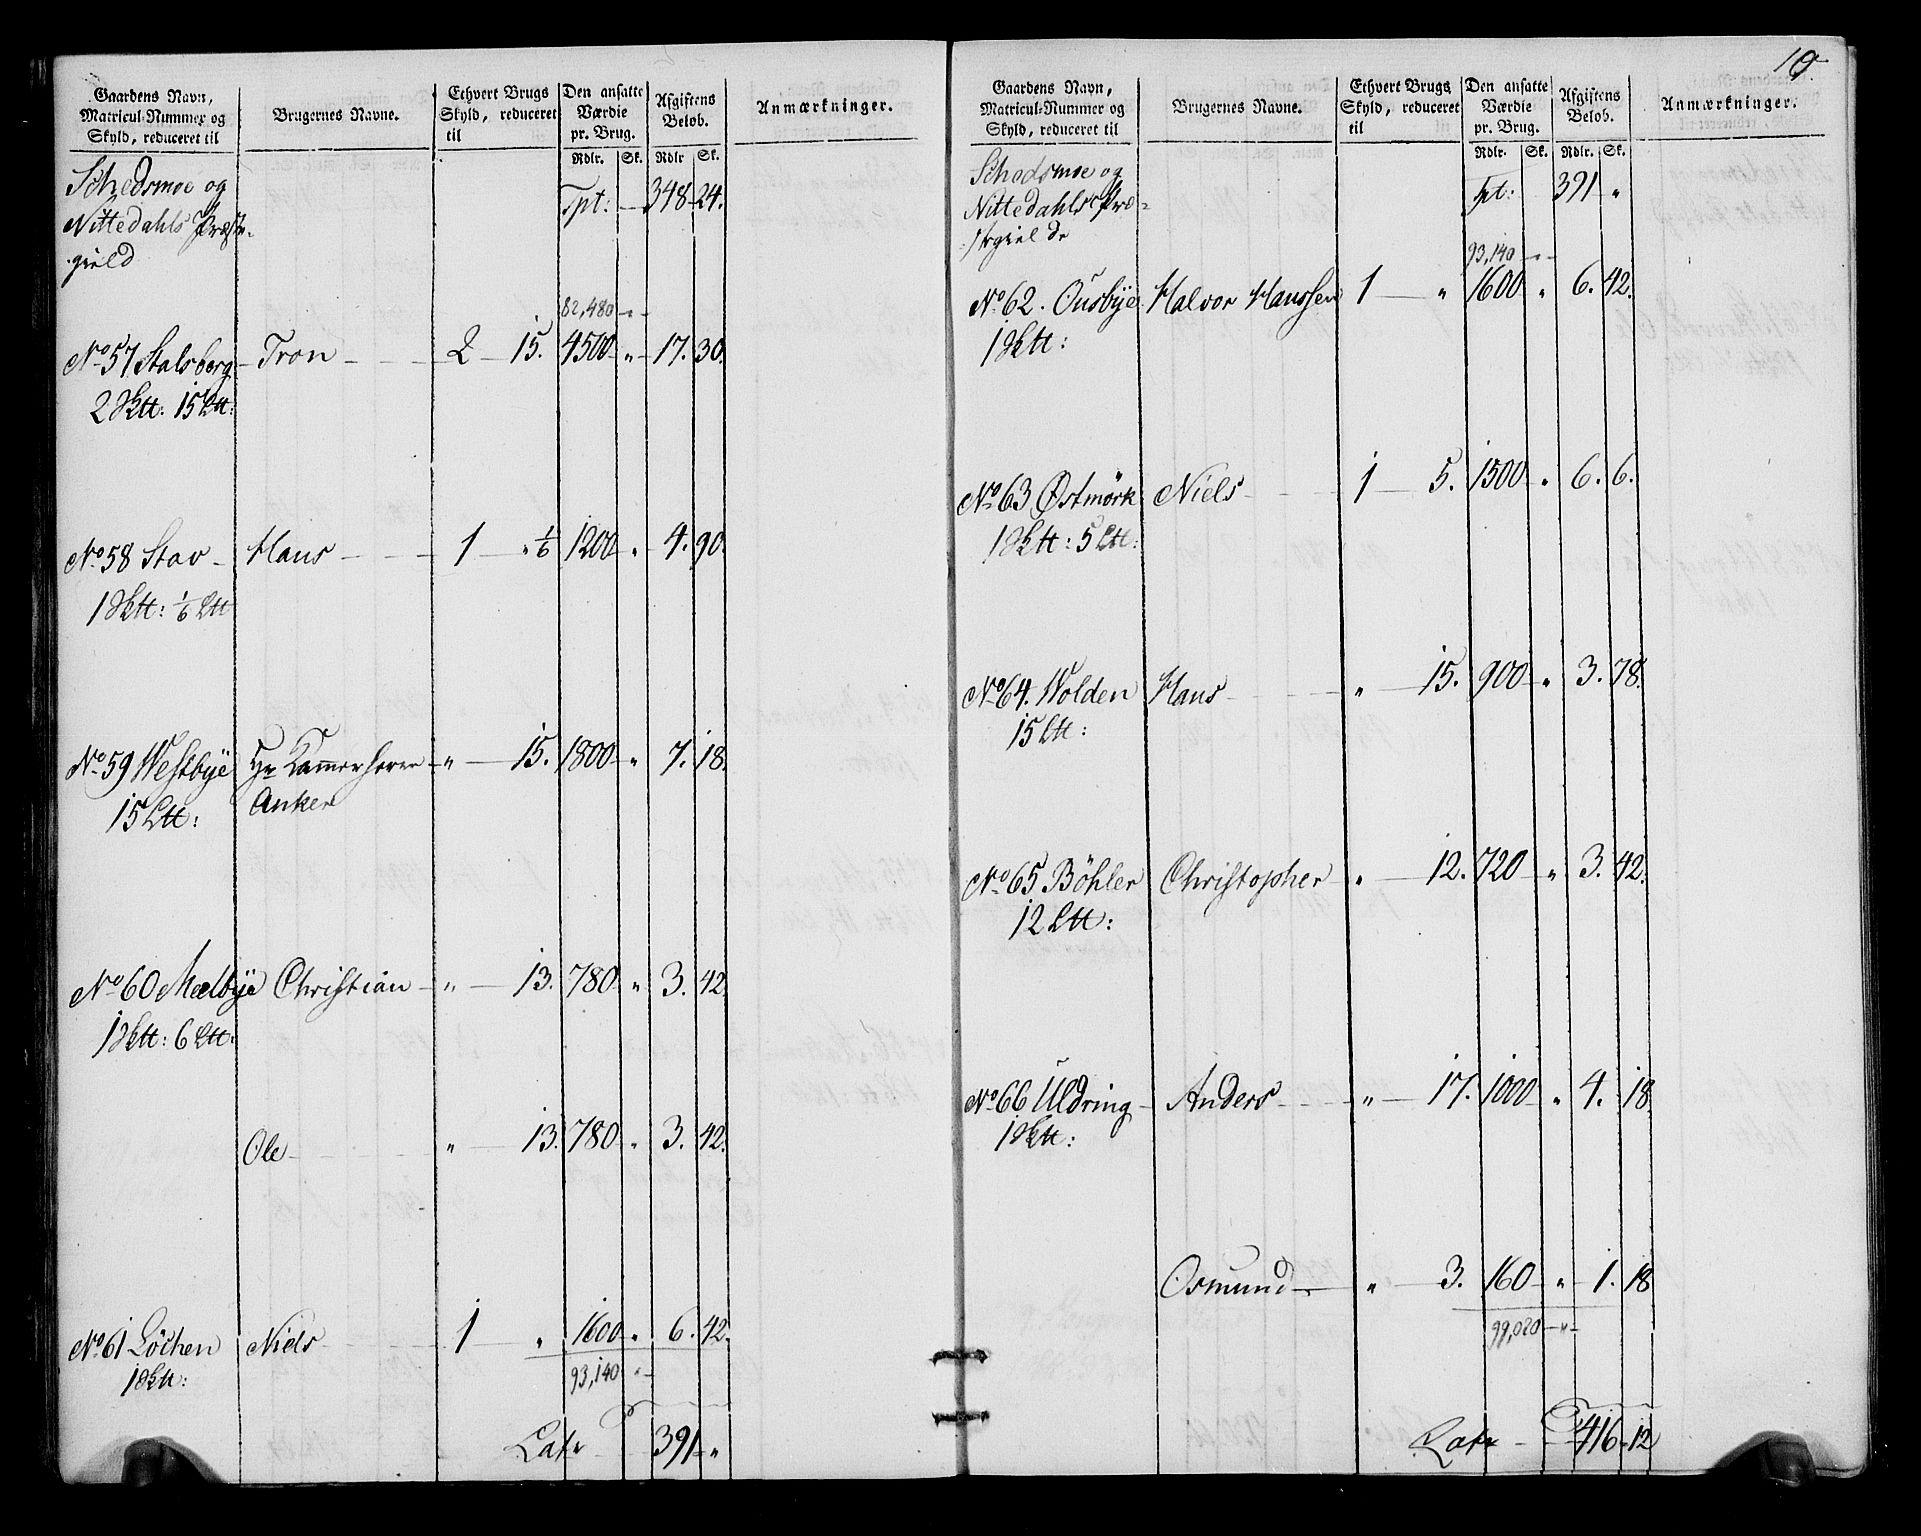 Gaardens Navn,
Matricul-Nummer og
Skyld, reduceret til
Brugernes Navne.
Ethvert Brugs
Skyld, reduceret
til
Den ansatte
Værdie
pr. Brug.
Rdlr. Sk.
Afgiftens
Beløb.
Rdlr Sk.
Anmærkninger.
Schedsmoe og
Nittedahls Præste-
gield
Tpt: 348 24.
82,480 - " -
No 57 Stalsberg Tron 2 15. 4500 " 17. 30.
2 Sktt: 15 Ltt:
No 58 Stav Hans 1 " 1/6 1200 " 4. 90.
1 Sktt: 1/6 Ltt
No 59 Westbye Hr Kammerherre " 15. 1800 " 7. 18.
15 Ltt: Anker
No 60 Melbye Christian " 13. 780 " 3. 42.
1 Sktt: 6 Ltt:
Ole " 13. 780 " 3. 42.
No 61 Löchen Niels 1 " 1600 " 6. 42.
1 Sktt:
93,140 " -
Latr 391 "
10.
Gaardens Navn,
Matricul-Nummer og
Skyld, reduceret til
Brugernes Navne.
Ethvert Brugs
Skyld, reduceret
til
Den ansatte
Værdie
pr. Brug.
Rdlr. Sk.
Afgiftens
Beløb.
Rdlr. Sk.
Anmærkninger.
Schedsmoe og
Nittedahls Præ-
stegield
Tpt: 391 "
93,140 - " -
No 62. Ousbye Halvor Hanssen 1 " 1600 " 6. 42.
1 Sktt:
No 63 Østmörk Niels 1 5. 1500 " 6. 6.
1 Sktt: 5 Ltt:
No 64. Wolden Hans " 15. 900 " 3. 78.
15 Ltt:
No 65 Böhler Christopher " 12. 720 " 3. 42.
12 Ltt:
No 66 Uldring Anders " 17. 1000 " 4. 18.
1 Sktt:
Osmund " 3. 160 " 1. 18
99,020 - " -
Latr 416 12